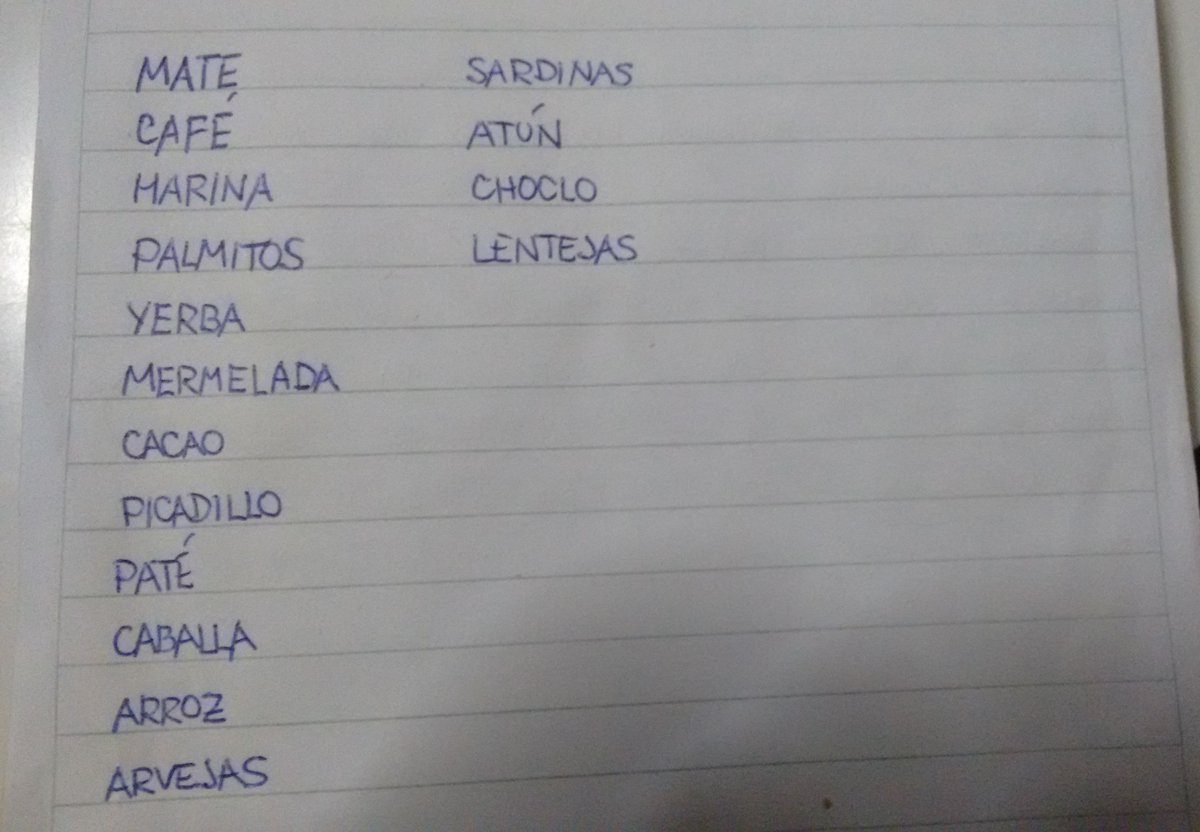 MATE
CAFÉ
HARINA
PALMITOS
YERBA
MERMELADA
CACAO
PICADILLO
PATÉ
CABALLA
ARROZ
ARVEJAS
SARDINAS
ATÚN
CHOCLO
LENTEJAS